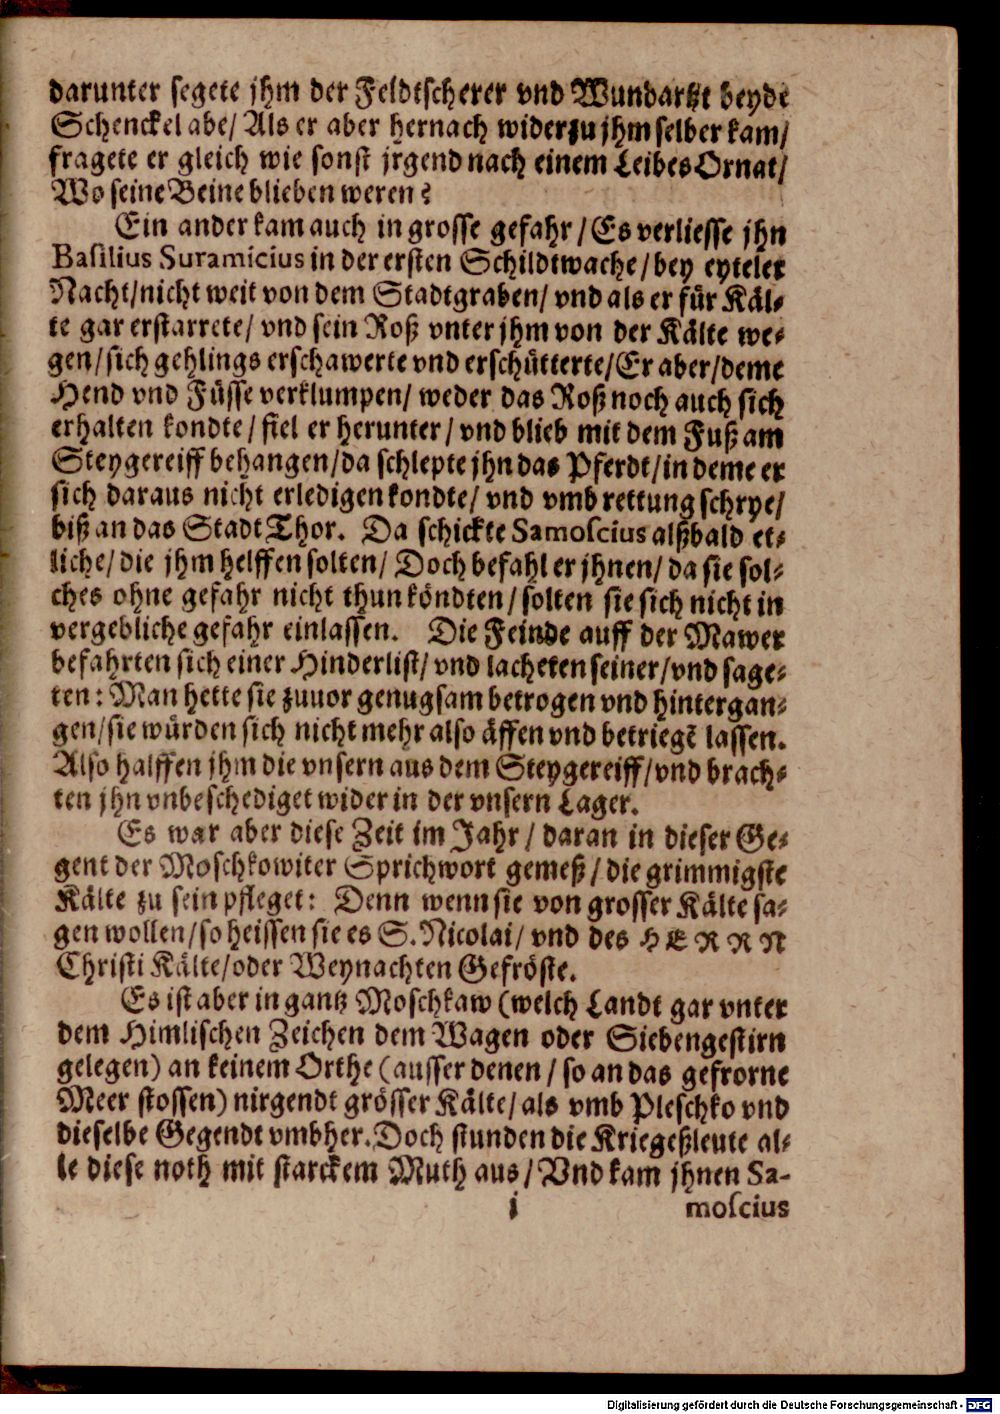 darunter segete jhm der Feldtscherer vnd Wundartzt beyde
Schenckel abe/ Als er aber hernach wider zu jhm selber kam/
fragete er gleich wie sonst jrgend nach einem Leibes Ornat/
Wo seine Beine blieben weren?
Ein ander kam auch in grosse gefahr/ Es verliesse jhn
Basilius Suramicius in der ersten Schildtwache/ bey eyteler
Nacht/ nicht weit von dem Stadtgraben/ vnd als er für Käl-
te gar erstarrete/ vnd sein Roß vnter jhm von der Kälte we-
gen/ sich gehlings erschawerte vnd erschütterte/ Er aber/ deme
Hend vnd Füsse verklumpen/ weder das Roß noch auch sich
erhalten kondte/ fiel er herunter/ vnd blieb mit dem Fuß am
Steygereiff behangen/ da schlepte jhn das Pferdt/ in deme er
sich daraus nicht erledigen kondte/ vnd vmb rettung schrye/
biß an das Stadt Thor. Da schickte Samoscius alßbald et-
liche/ die jhm helffen solten/ Doch befahl er jhnen/ da sie sol-
ches ohne gefahr nicht thun köndten/ solten sie sich nicht in
vergebliche gefahr einlassen. Die Feinde auff der Mawer
befahrten sich einer Hinderlist/ vnd lacheten seiner/ vnd sage-
ten: Man hette sie zuuor genugsam betrogen vnd hintergan-
gen/ sie würden sich nicht mehr also äffen vnd betriegē lassen.
Also halffen jhm die vnsern aus dem Steygereiff/ vnd brach-
ten jhn vnbeschediget wider in der vnsern Lager.
Es war aber diese Zeit im Jahr/ daran in dieser Ge-
gent der Moschkowiter Sprichwort gemeß/ die grimmigste
Kälte zu sein pfleget: Denn wenn sie von grosser Kälte sa-
gen wollen/ so heissen sie es S. Nicolai/ vnd des HERRN
Christi Kälte/ oder Weynachten Gefröste.
Es ist aber in gantz Moschkaw (welch Landt gar vnter
dem Himlischen Zeichen dem Wagen oder Siebengestirn
gelegen) an keinem Orthe (ausser denen/ so an das gefrorne
Meer stossen) nirgendt grösser Kälte/ als vmb Pleschko vnd
dieselbe Gegendt vmbher. Doch stunden die Kriegeßleute al-
le diese noth mit starckem Muth aus/ Vnd kam jhnen Sa-
i moscius
Digitalisierung gefördert durch die Deutsche Forschungsgemeinschaft - DFG